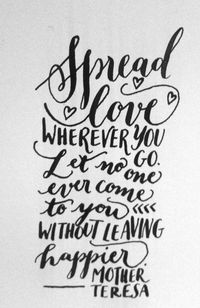 Spread
love
WHEREVER YOU
GO.
Let no one
ever come
to you
WITHOUT LEAVING
happier.
MOTHER
TERESA